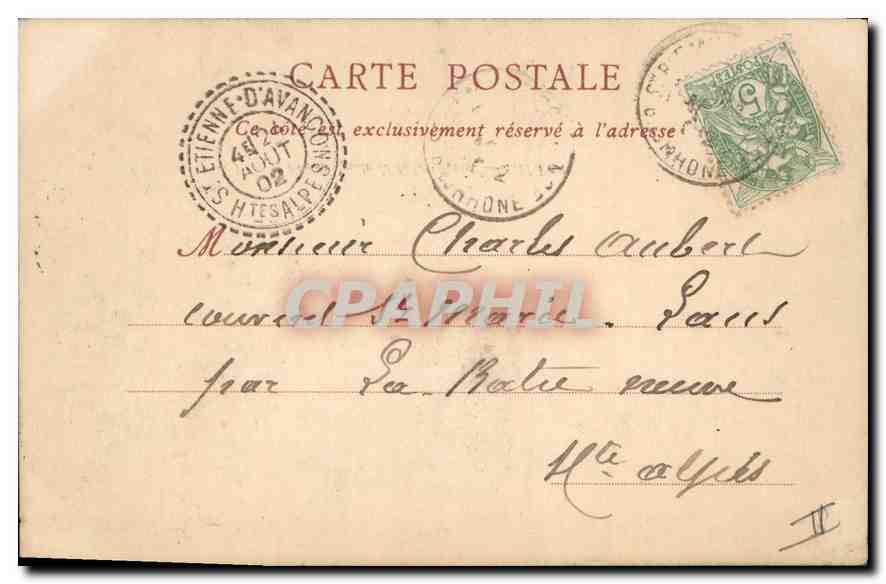 CARTE POSTALE
Ce côté est exclusivement réservé à l'adresse
ST ETIENNE-D'AVANÇON
4E
AOUT
02
HTES ALPES
RHONE
2
RHONE
5
POSTES
Monsieur Charles Aubert
couvent Ste Marie. Laus
par La Batie neuve
Hte alpes
CPAPHIL
II